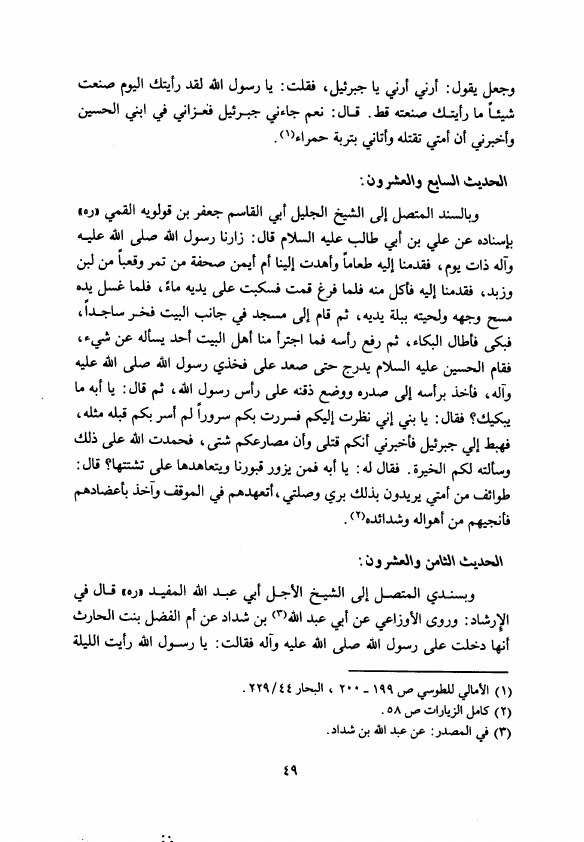 وجعل يقول: أرني أرني يا جبرئيل، فقلت: يا رسول الله لقد رأيتك اليوم صنعت
شيئاً ما رأيتك صنعته قط. قال: نعم جاءني جبرئيل فعزاني في ابني الحسين
وأخبرني أن أمتي تقتله وأتاني بتربة حمراء(١).
الحديث السابع والعشرون:
وبالسند المتصل إلى الشيخ الجليل أبي القاسم جعفر بن قولويه القمي «ره»
بإسناده عن علي بن أبي طالب عليه السلام قال: زارنا رسول الله صلى الله عليه
وآله ذات يوم، فقدمنا إليه طعاماً وأهدت إلينا أم أيمن صحفة من تمر وقعباً من لبن
وزبد، فقدمنا إليه فأكل منه فلما فرغ قمت فسكبت على يديه ماءً، فلما غسل يده
مسح وجهه ولحيته ببلة يديه، ثم قام إلى مسجد في جانب البيت فخر ساجداً،
فبكى فأطال البكاء، ثم رفع رأسه فما اجترأ منا أهل البيت أحد يسأله عن شيء،
فقام الحسين عليه السلام يدرج حتى صعد على فخذي رسول الله صلى الله عليه
وآله، فأخذ برأسه إلى صدره ووضع ذقنه على رأس رسول الله، ثم قال: يا أبه ما
يبكيك؟ فقال: يا بني إني نظرت إليكم فسررت بكم سروراً لم أسر بكم قبله مثله،
فهبط إلي جبرئيل فأخبرني أنكم قتلى وأن مصارعكم شتى، فحمدت الله على ذلك
وسألته لكم الخيرة. فقال له: يا أبه فمن يزور قبورنا ويتعاهدها على تشتتها؟ قال:
طوائف من أمتي يريدون بذلك بري وصلتي، أتعهدهم في الموقف وآخذ بأعضادهم
فأنجيهم من أهواله وشدائده(٢).
الحديث الثامن والعشرون:
وبسندي المتصل إلى الشيخ الأجل أبي عبد الله المفيد «ره» قال في
الإرشاد: وروى الأوزاعي عن أبي عبد الله(٣) بن شداد عن أم الفضل بنت الحارث
أنها دخلت على رسول الله صلى الله عليه وآله فقالت: يا رسول الله رأيت الليلة
(١) الأمالي للطوسي ص ١٩٩ ـ ٢٠٠ ، البحار ٤٤/٢٢٩.
(٢) كامل الزيارات ص ٥٨.
(٣) في المصدر: عن عبد الله بن شداد.
٤٩